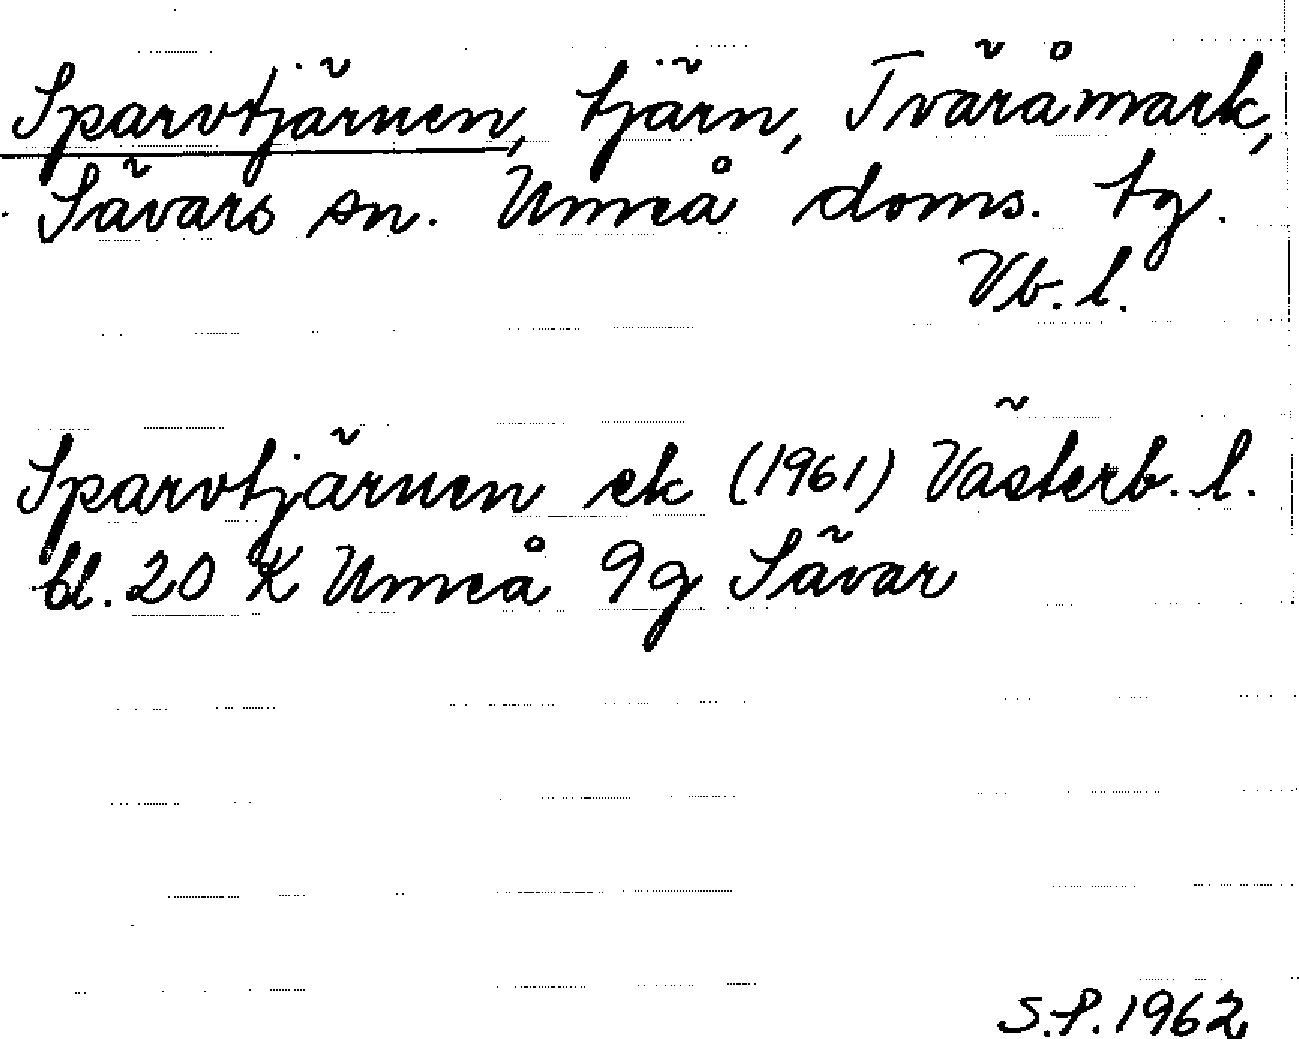 Sparvtjärnen, tjärn, Tväråmark,
Sävars sn. Umeå doms. tg.
Vb. l.
Sparvtjärnen ek (1961) Västerb. l.
bl. 20 K Umeå 9g Sävar
S.P. 1962